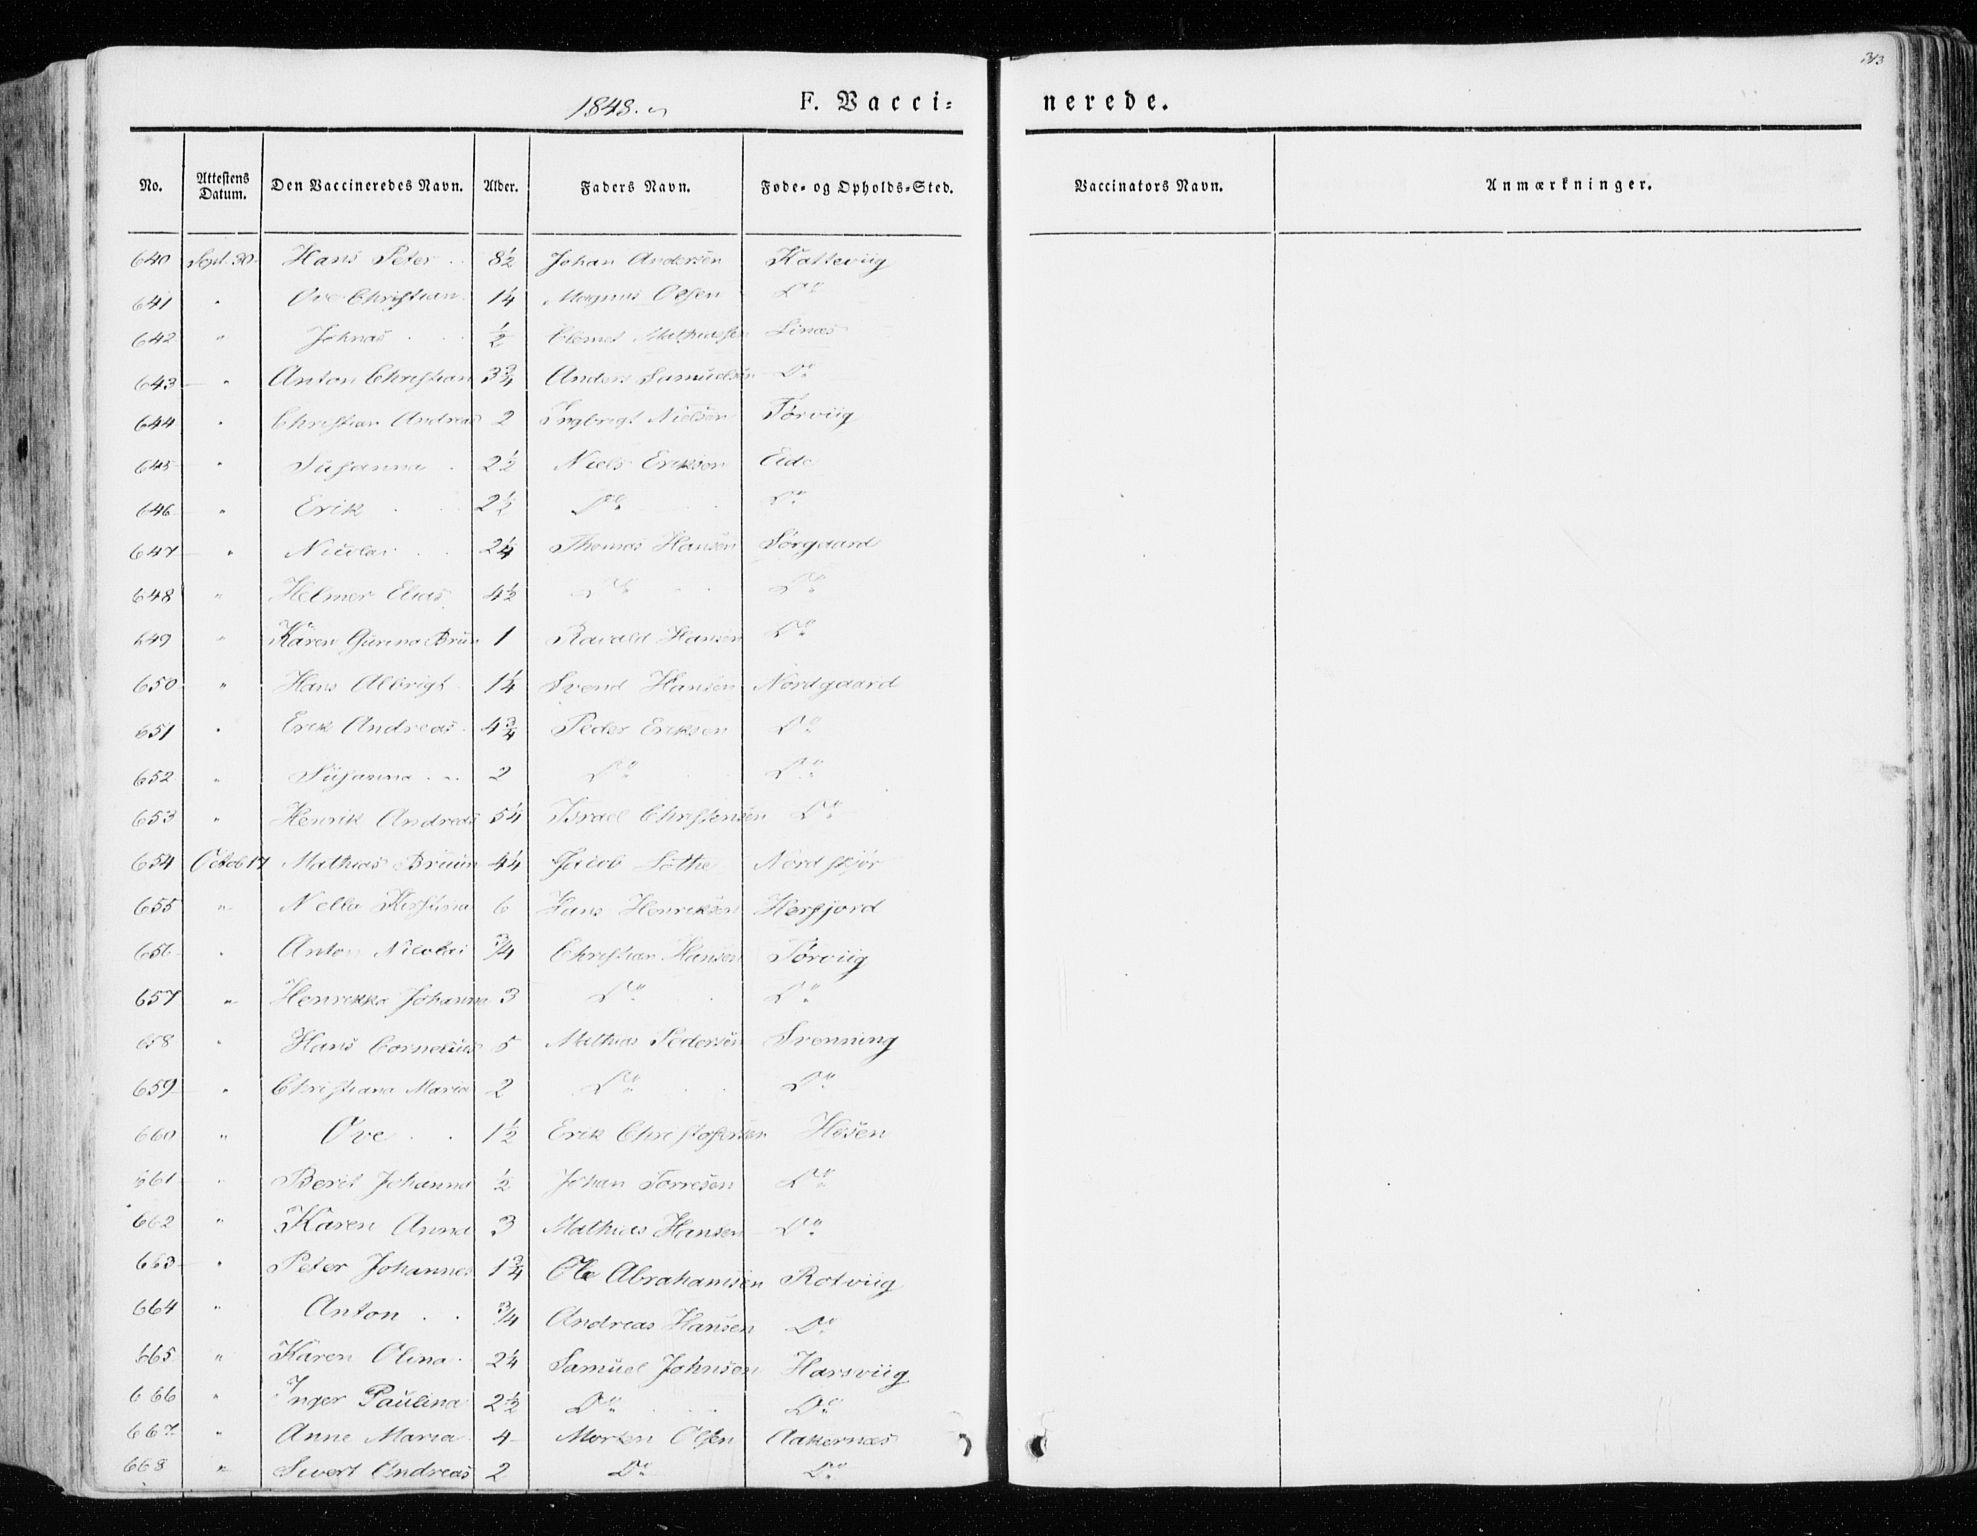 313
1848.
F. Vacci=
nerede.
No. Attestens Datum. Den Vaccineredes Navn. Alder. Faders Navn. Føde= og Opholds=Sted. Vaccinators Navn. Anmærkninger.
640 Sept. 30 Hans Peter 8½ Johan Andersen Katteviig
641 " Ove Christian 1¼ Magnus Olsen Do
642 " Johnas ½ Clemet Mathiassen Linæs
643 " Anton Christian 3¾ Anders Samuelsen Do
644 " Christian Andreas 2 Ingbrigt Nielsen Tørviig
645 " Susanna 2½ Niels Eriksen Eide
646 " Erik 2½ Do Do
647 " Nicolai 2¼ Thomas Hansen Sørgaard
648 " Helmer Elias 4½ Do Do
649 " Karen Gurina Bruun 1 Ravald Hansen Do
650 " Hans Albrigt 1¼ Svend Hansen Nordgaard
651 " Erik Andreas 4¾ Peder Eriksen Do
652 " Susanna 2 Do Do
653 " Henrik Andreas 5¼ Israel Christensen Do
654 Octob 17 Mathias Bruun 4¼ Jacob Lothe Nordskjør
655 " Nella Kirstina 6 Hans Henriksen Herfjord
656 " Anton Nicolai ¾ Christian Hansen Tørviig
657 " Henrikka Johanna 3 Do Do
658 " Hans Cornelius 5 Mathias Pedersen Svenning
659 " Christiana Maria 2 Do Do
660 " Ove 1½ Erik Christofersen Hosen
661 " Berit Johanna ½ Johan Torresen Do
662 " Karen Anna 3 Mathias Hansen Do
663 " Peter Johannes 1¾ Ole Abrahamsen Rotviig
664 " Anton ¾ Andreas Hansen Do
665 " Karen Olina 2¼ Samuel Johnsen Harsviig
666 " Inger Paulina 2½ Do Do
667 " Anne Maria 4 Morten Olsen Aakernæs
668 " Sivert Andreas 2 Do Do